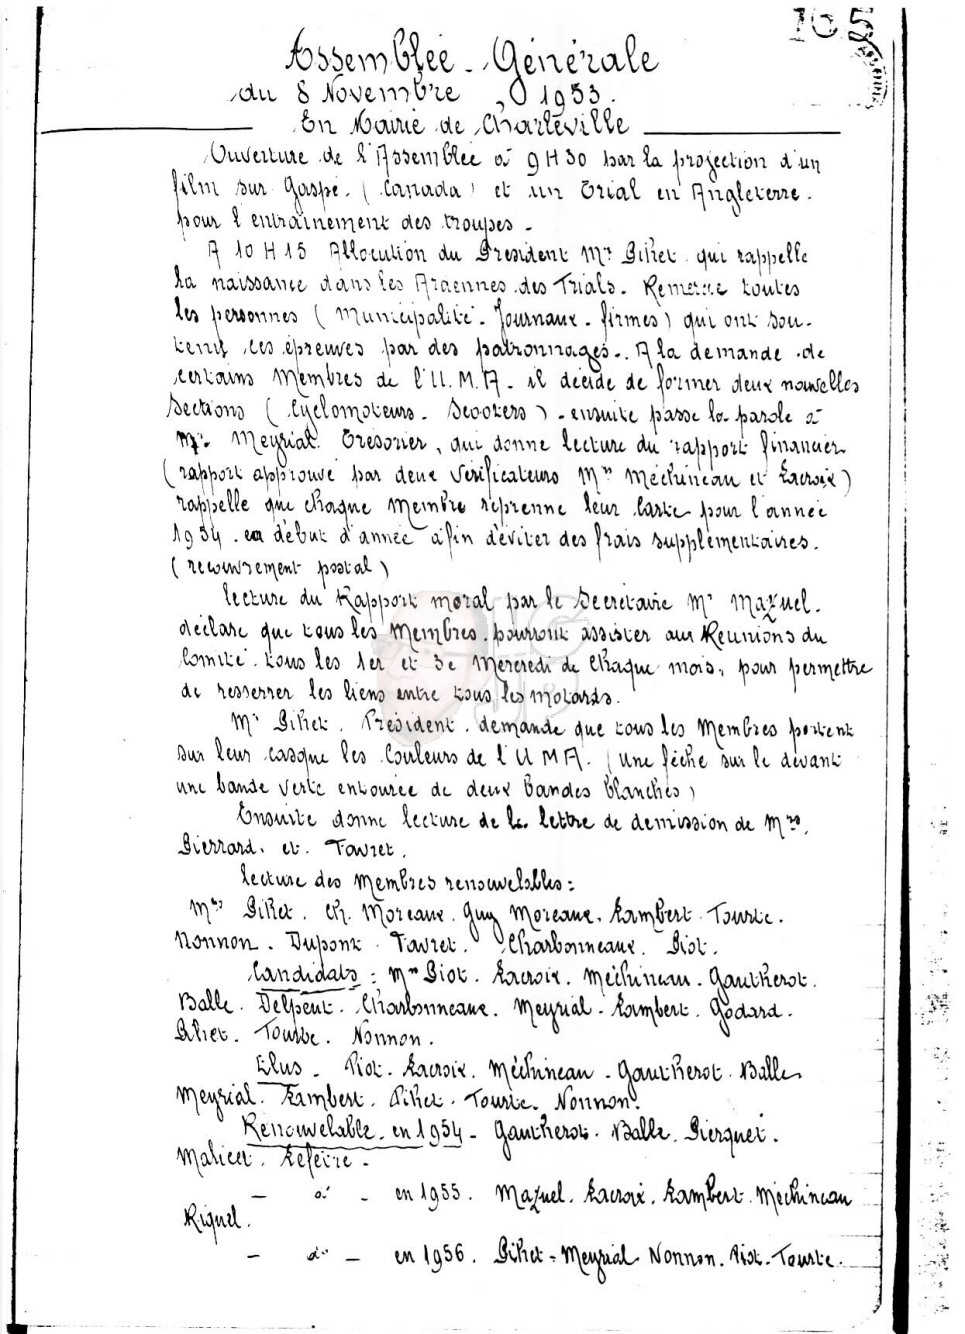 165
Assemblée - Générale
du 8 Novembre, 1953.
En Mairie de Charleville
Ouverture de l'Assemblée à 9H30 par la projection d'un
film sur Gaspé. (Canada) et un Trial en Angleterre.
pour l'entraînement des troupes.
A 10H15 Allocution du Président Mr Pihet qui rappelle
la naissance dans les Ardennes des Trials. Remercie toutes
les personnes (Municipalité. Journaux. firmes) qui ont sou-
tenu ces épreuves par des patronnages.. A la demande de
certains Membres de l'U.M.A. il décide de former deux nouvelles
Sections (Cyclomoteurs. Scooters). ensuite passe la parole à
Mr. Meyrial. Trésorier, qui donne lecture du rapport financier
(rapport approuvé par deux vérificateurs Mrs Méchineau et Lacroix)
rappelle que chaque Membre reprenne leur Carte pour l'année
1954. en début d'année afin d'éviter des frais supplémentaires.
(recouvrement postal)
Lecture du Rapport moral par le Secrétaire Mr Mazuel.
déclare que tous les Membres pourront assister aux Réunions du
Comité. tous les 1er et 3e Mercredi de chaque mois, pour permettre
de resserrer les liens entre tous les motards.
Mr Pihet. Président. demande que tous les Membres portent
sur leur casque les Couleurs de l'UMA. (une féche sur le devant
une bande verte entourée de deux bandes blanches)
Ensuite donne lecture de la lettre de demission de Mrs.
Pierrard. et. Tavret.
Lecture des Membres renouvelables:
Mrs Pihet. Ch. Moreaux. Guy Moreaux. Lambert. Tourte.
Nonnon. Dupont. Tavret. Charbonneaux. Piot.
Candidats: Mrs Piot. Lacroix. Méchineau. Gautherot.
Balle. Delpeut. Charbonneaux. Meyrial. Lambert. Godard.
Pihet. Tourte. Nonnon.
Elus. Piot. Lacroix. Méchineau. Gautherot. Balle
Meyrial. Lambert. Pihet. Tourte. Nonnon.
Renouvelable. en 1954. Gautherot. Balle. Pierquet.
Malicet. Lefevre.
— d° - en 1955. Mazuel. Lacroix. Lambert. Méchineau
Riquel.
— d° — en 1956. Pihet. Meyrial. Nonnon. Piot. Tourte.